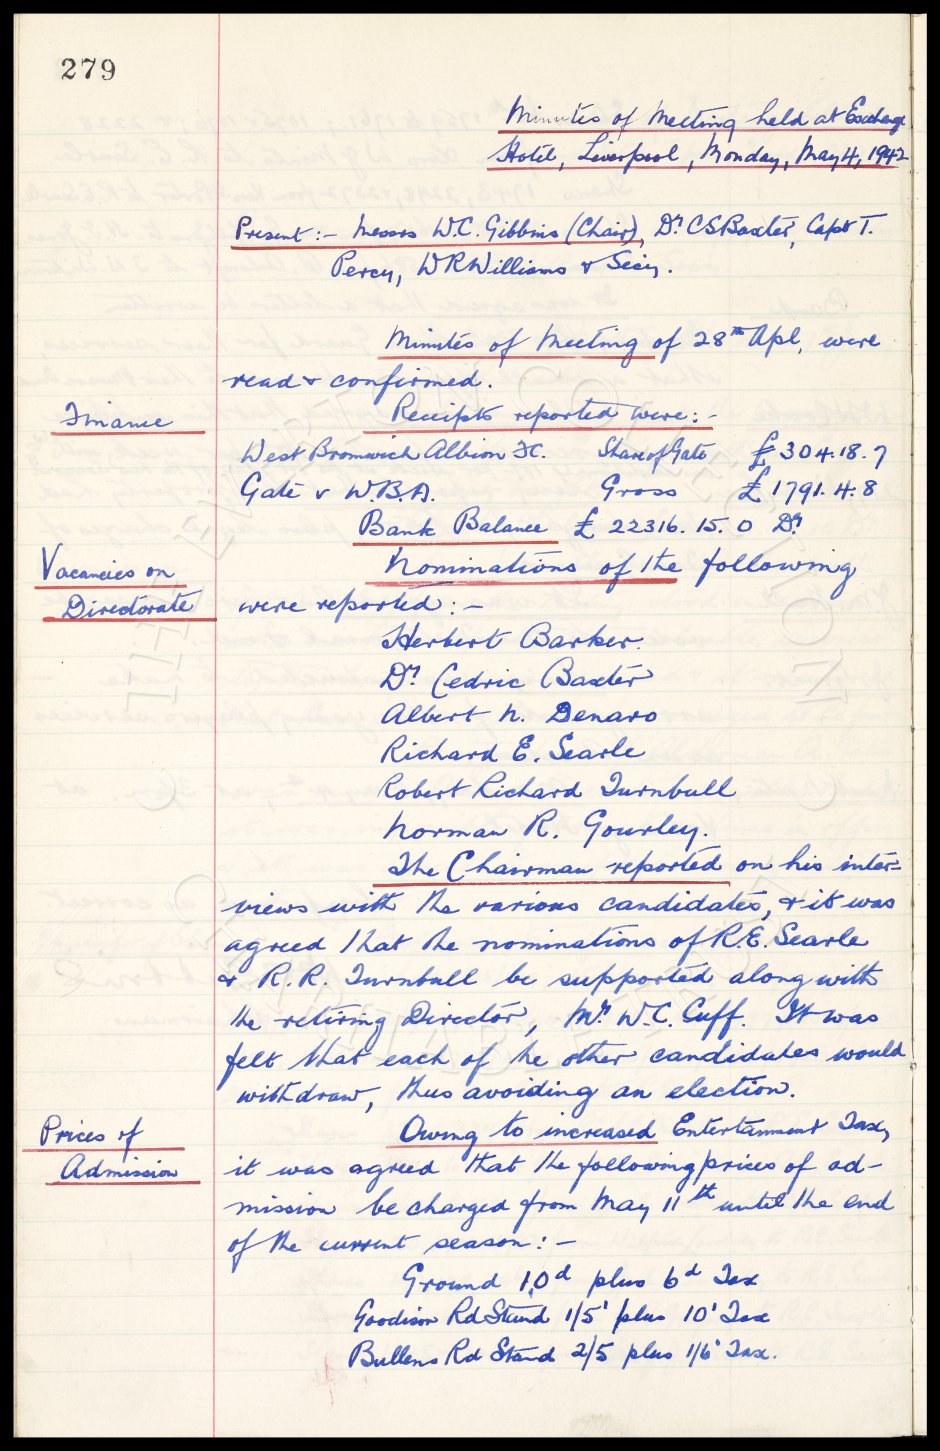 279
Minutes of Meeting held at Exchange
Hotel, Liverpool, Monday, May 4, 1942
Present :- Messrs W.C. Gibbins (Chair), Dr. C S Baxter, Capt T.
Percy, W R Williams & Secy.
Minutes of Meeting of 28th Apl, were
read & confirmed.
Finance
Receipts reported were: -
West Bromwich Albion FC. Share of Gate £304.18.7
Gate v W.B.A. Gross £1791.4.8
Bank Balance £22316.15.0 Dr
Vacancies on
Directorate
Nominations of the following
were reported: -
Herbert Barker.
Dr Cedric Baxter
Albert N. Denaro
Richard E. Searle
Robert Richard Turnbull
Norman R. Gourley.
The Chairman reported on his inter=
views with the various candidates, & it was
agreed that the nominations of R.E. Searle
& R.R. Turnbull be supported along with
the retiring Director, Mr. W.C. Cuff. It was
felt that each of the other candidates would
withdraw, thus avoiding an election.
Prices of
Admission
Owing to increased Entertainment Tax,
it was agreed that the following prices of ad-
mission be charged from May 11th until the end
of the current season: -
Ground 10d plus 6d Tax
Goodison Rd Stand 1/5' plus 10' Tax
Bullens Rd Stand 2/5 plus 1/6' Tax.